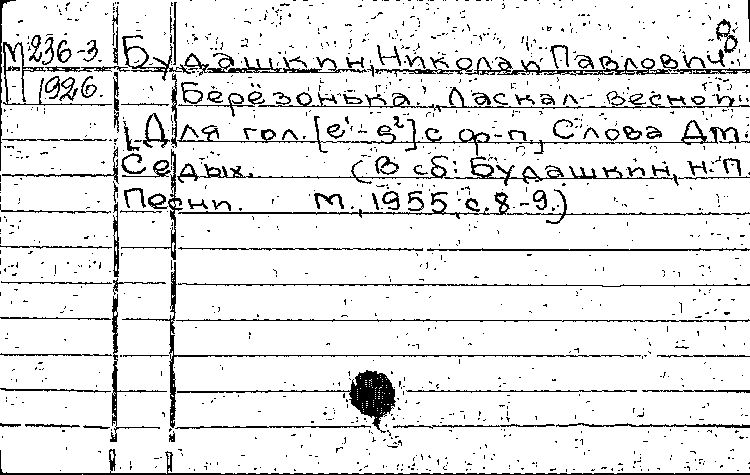 8
М 236-3. Будашкин, Николай Павлович.
1926. Берёзонька. „Ласкал весной..
[Для гол. [e¹-g²] с ф-п, Слова Дм.
Седых. (В сб: Будашкин, Н. П.
Песни. М., 1955, с. 8-9.)